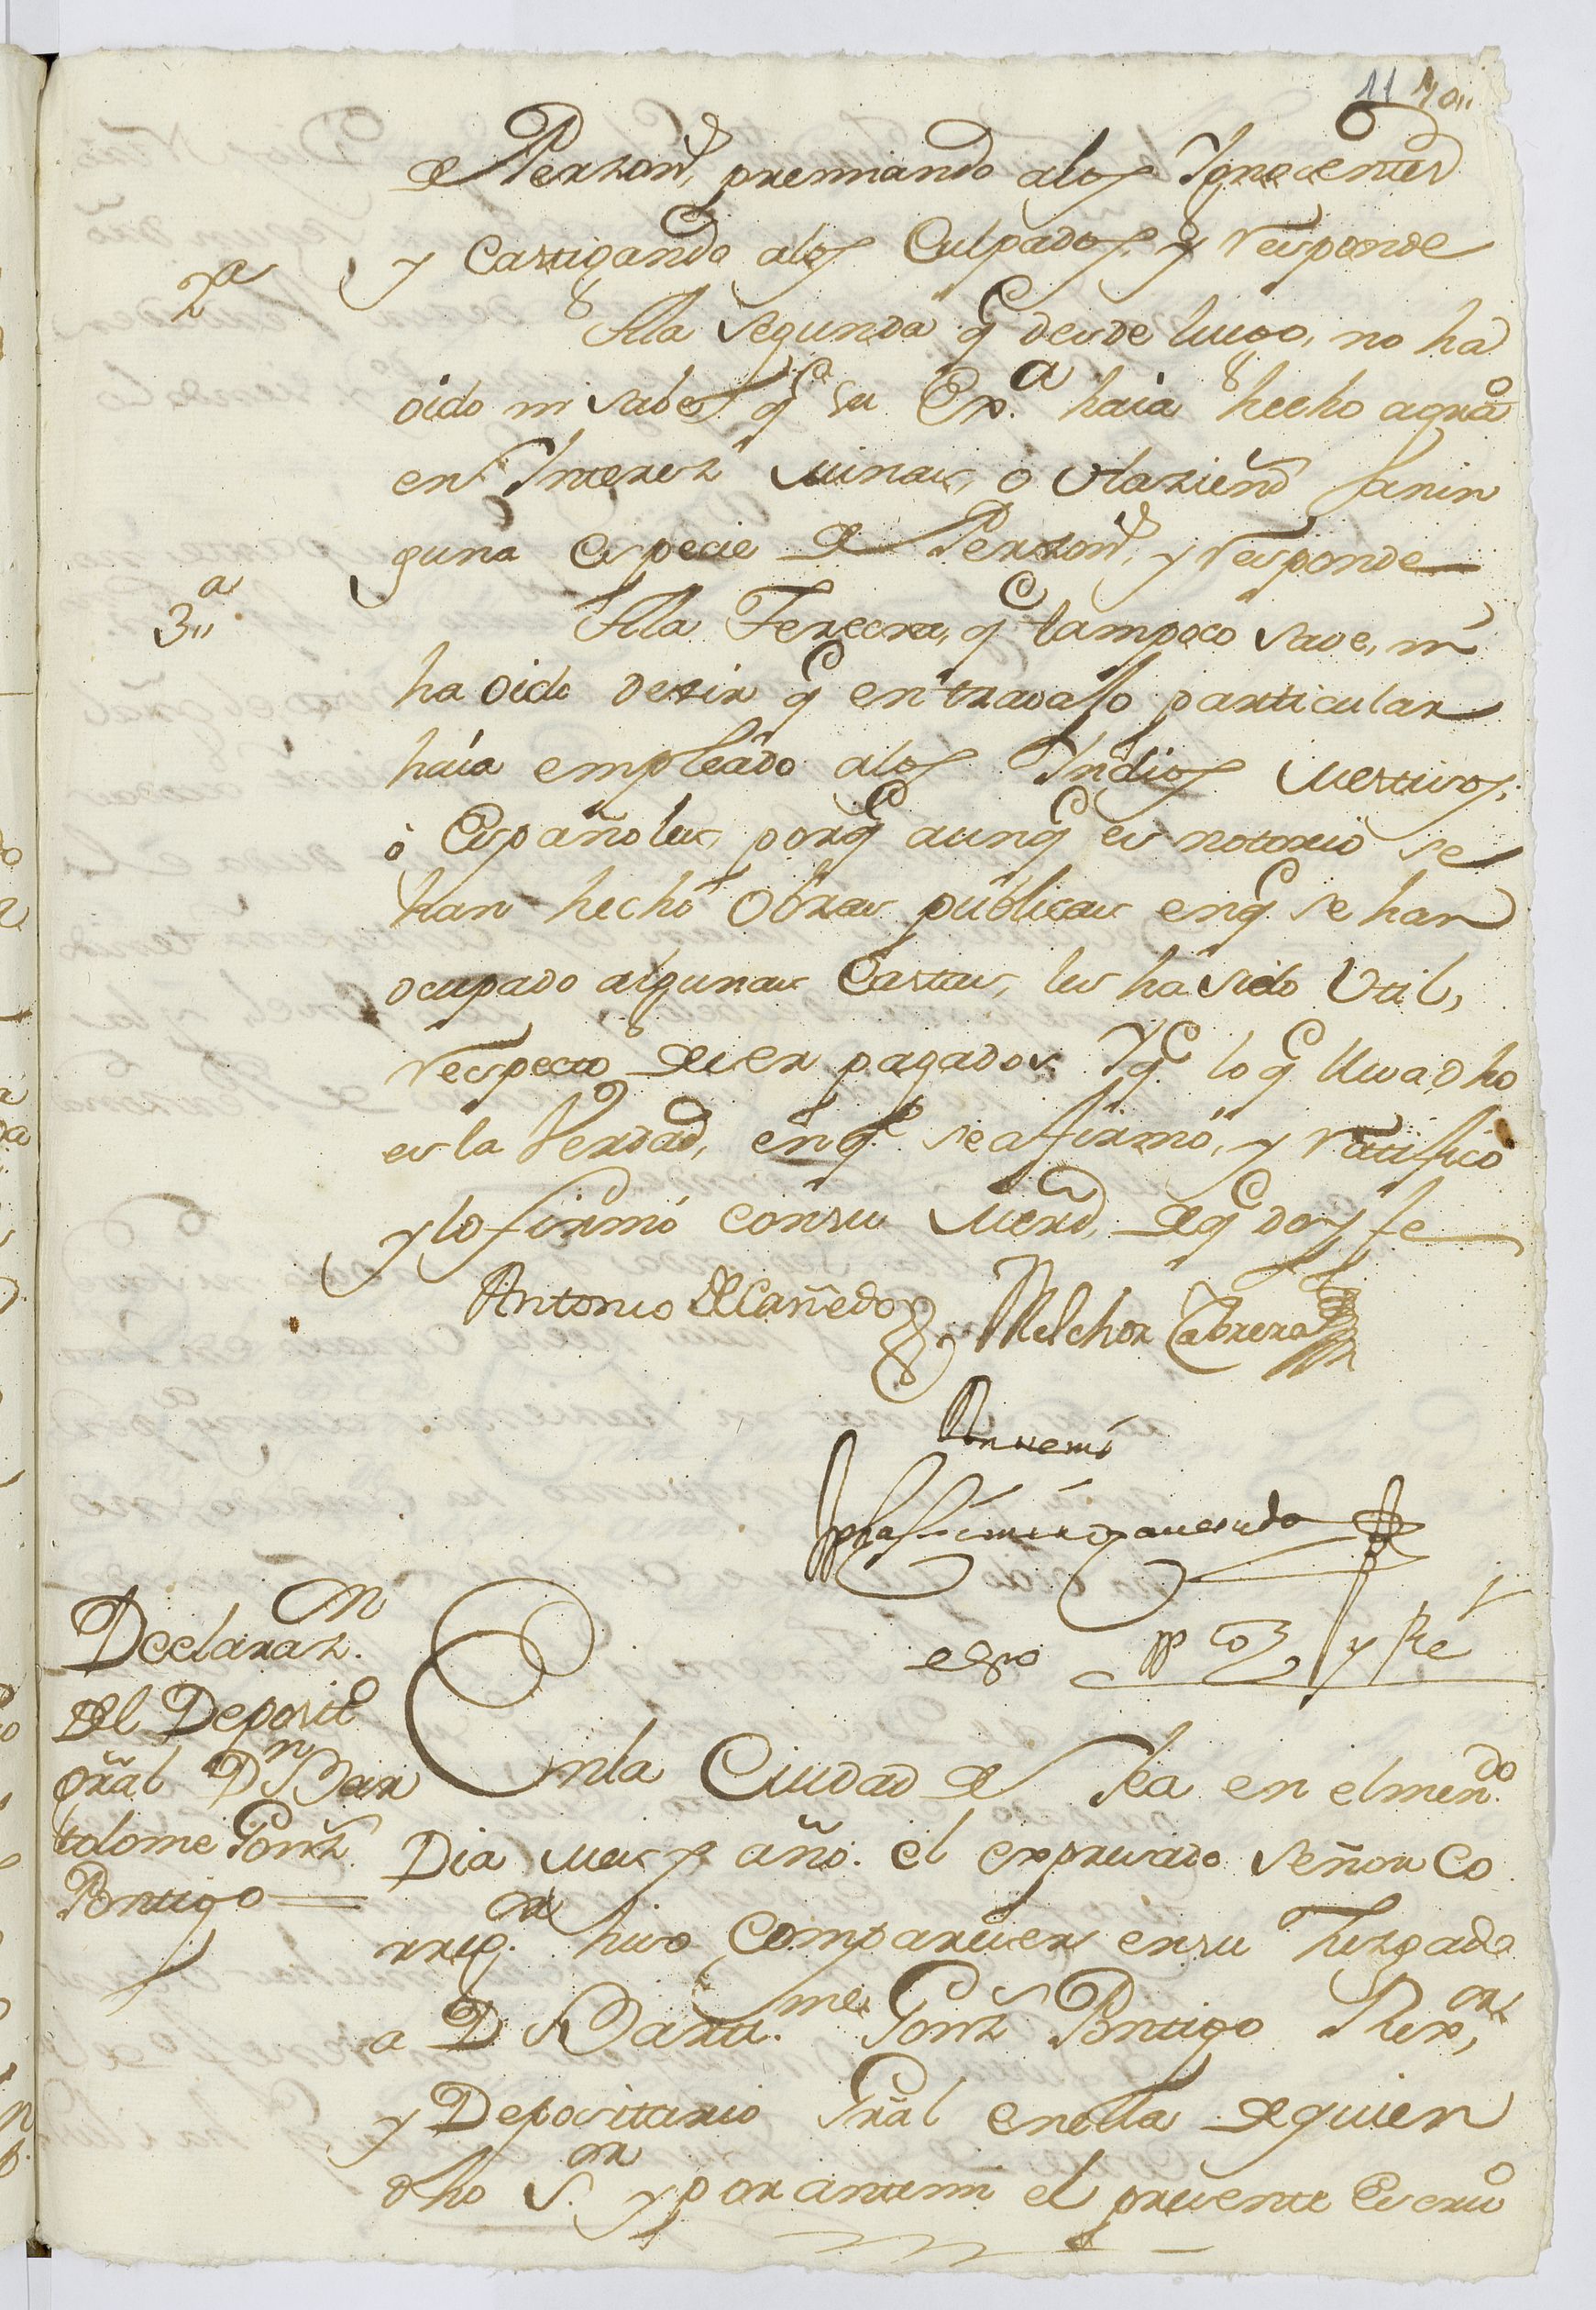 11 10,,
de Perzons, premiando alos Ignocentes
y Castigando alos Culpados. y responde
2ª
Ala Segunda q̃ desde luego, no ha
oido ni sabe q̃ su Exª haia hecho agrao
en Interez minas, o Hazienda a nin
guna especie de Perzons, y responde
3,,ª
Ala Tercera, q̃ tampoco save, ni
ha oido dezir q̃ en travajo particular
haia empleado alos Indios Mestisos,
ò Españoles, porq̃ aunq̃ es notorio se
han hecho Obras publicas enq̃ se han
ocupado algunas Castas, les ha sido Util,
respecto de ser pagados. Yq̃ lo q̃ lleva dho
es la Verdad, enq̃ se afirmó, y ratificò
y lo firmó consu Merd, deq̃ doy fe
Antonio de Cañedo Melchor Cabrera
Antemi
essno ppco y Rl
Declarazn.
del Deposito
Gral Dn Bar
tolome Gonz
Pontigo
Enla Ciudad de Ica en elmendo
Dia mes y año. el expresado Señor Co
rregor. hiso Compareser ensu Juzgado
a D Bartme. Gonz Pontigo Rexor,
y Depositario Gral enella dequien
dho Sor. y por antemi el presente Escrio